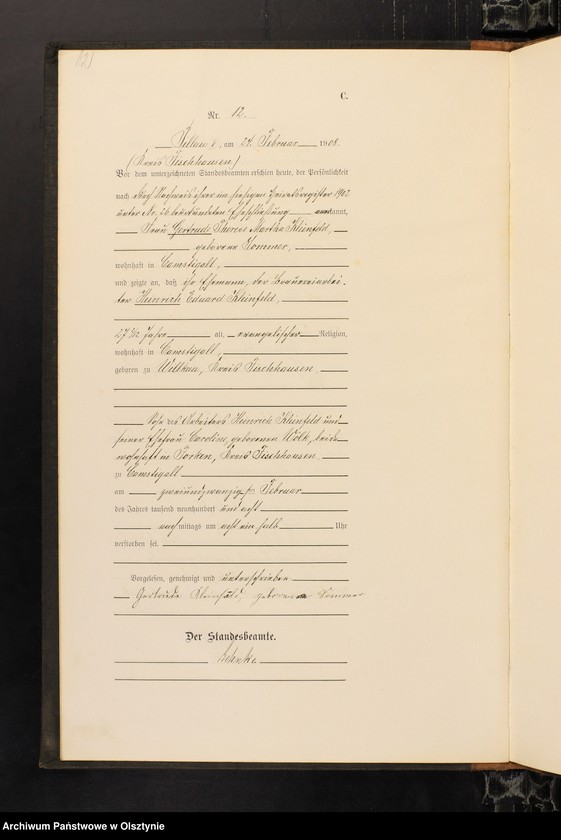 C.
Nr. 12.
Pillau, am 24. Februar 1908.
(Kreis Fischhausen)
Vor dem unterzeichneten Standesbeamten erschien heute, der Persönlichkeit
nach durch Nachweis ihrer im hiesigen Heiratsregister 1902
unter No. 26 beurkundeten Eheschließung anerkannt,
Frau Gertrude Therese Martha Kleinfeld,
geborene Sommer,
wohnhaft in Camstigall,
und zeigte an, daß ihr Ehemann, der Brauereiarbei-
ter Heinrich Eduard Kleinfeld,
27 Jahre alt, evangelischer Religion,
wohnhaft in Camstigall,
geboren zu Kreis Fischhausen
Sohn des Arbeiters Heinrich Kleinfeld und
seiner Ehefrau Caroline, geborenen Wölk, beide
wohnhaft in Kreis Fischhausen
zu Camstigall
am zweiundzwanzigsten Februar
des Jahres tausend neunhundert und acht
nachmittags um acht ein halb Uhr
verstorben sei.
Vorgelesen, genehmigt und unterschrieben
Gertrude Kleinfeld, geborene Sommer
Der Standesbeamte.
Archiwum Państwowe w Olsztynie